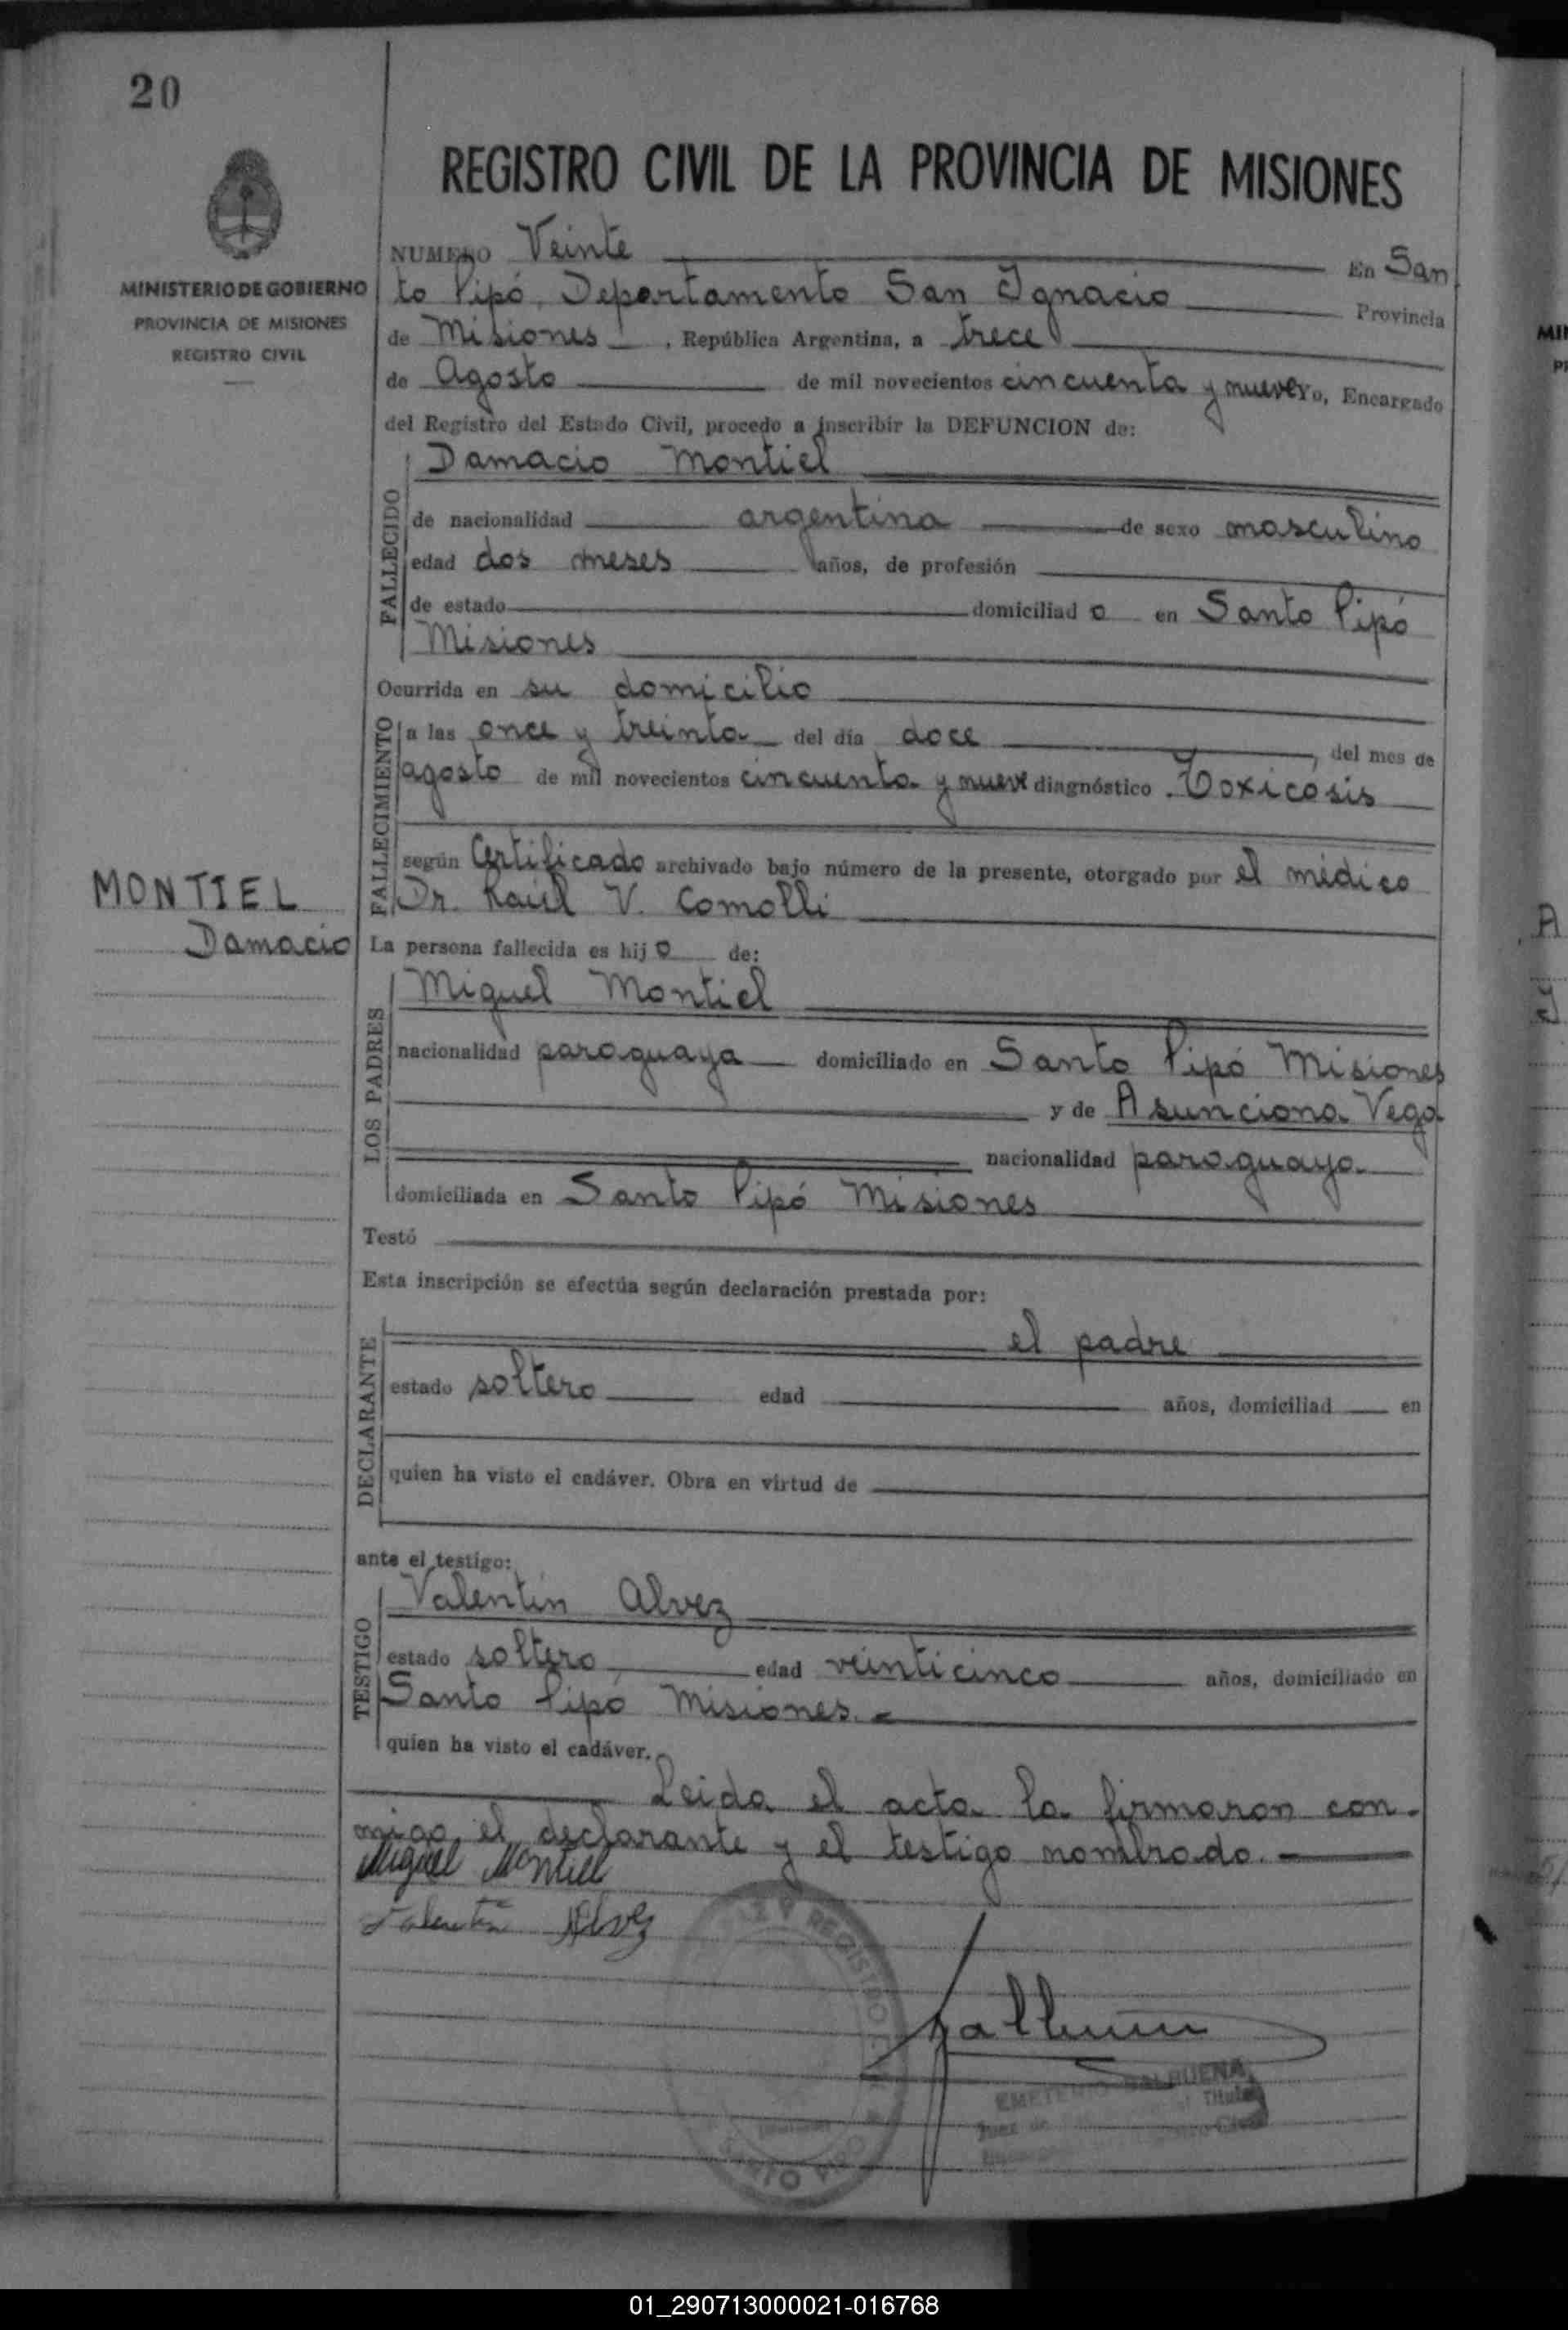 20
MINISTERIO DE GOBIERNO
PROVINCIA DE MISIONES
REGISTRO CIVIL
REGISTRO CIVIL DE LA PROVINCIA DE MISIONES
NUMERO Veinte En San
to Pipó, Departamento San Ignacio Provincia
de Misiones, República Argentina, a trece
de Agosto de mil novecientos cincuenta y nueve Yo, Encargado
del Registro del Estado Civil, procedo a inscribir la DEFUNCION de:
FALLECIDO
Damacio Montiel
de nacionalidad argentina de sexo masculino
edad dos meses años, de profesión
de estado domiciliado en Santo Pipó
Misiones
Ocurrida en su domicilio
FALLECIMIENTO
a las once y treinta del día doce, del mes de
agosto de mil novecientos cincuenta y nueve diagnóstico Toxicósis
según Certificado archivado bajo número de la presente, otorgado por el médico
Dr. Raúl V. Comolli
MONTIEL
Damacio
La persona fallecida es hijo de:
LOS PADRES
Miguel Montiel
nacionalidad paraguaya domiciliado en Santo Pipó Misiones
y de Asunciona Vega
nacionalidad paraguaya
domiciliada en Santo Pipó Misiones
Testó
Esta inscripción se efectúa según declaración prestada por:
DECLARANTE
el padre
estado soltero edad años, domiciliad en
quien ha visto el cadáver. Obra en virtud de
ante el testigo:
TESTIGO
Valentín Alvez
estado soltero edad veinticinco años, domiciliado en
Santo Pipó Misiones.-
quien ha visto el cadáver.
Leida el acta la firmaron con-
migo el declarante y el testigo nombrado.-
Miguel Montiel
Valentin Alvez
EMETERIO BALBUENA
Juez de
01_290713000021-016768